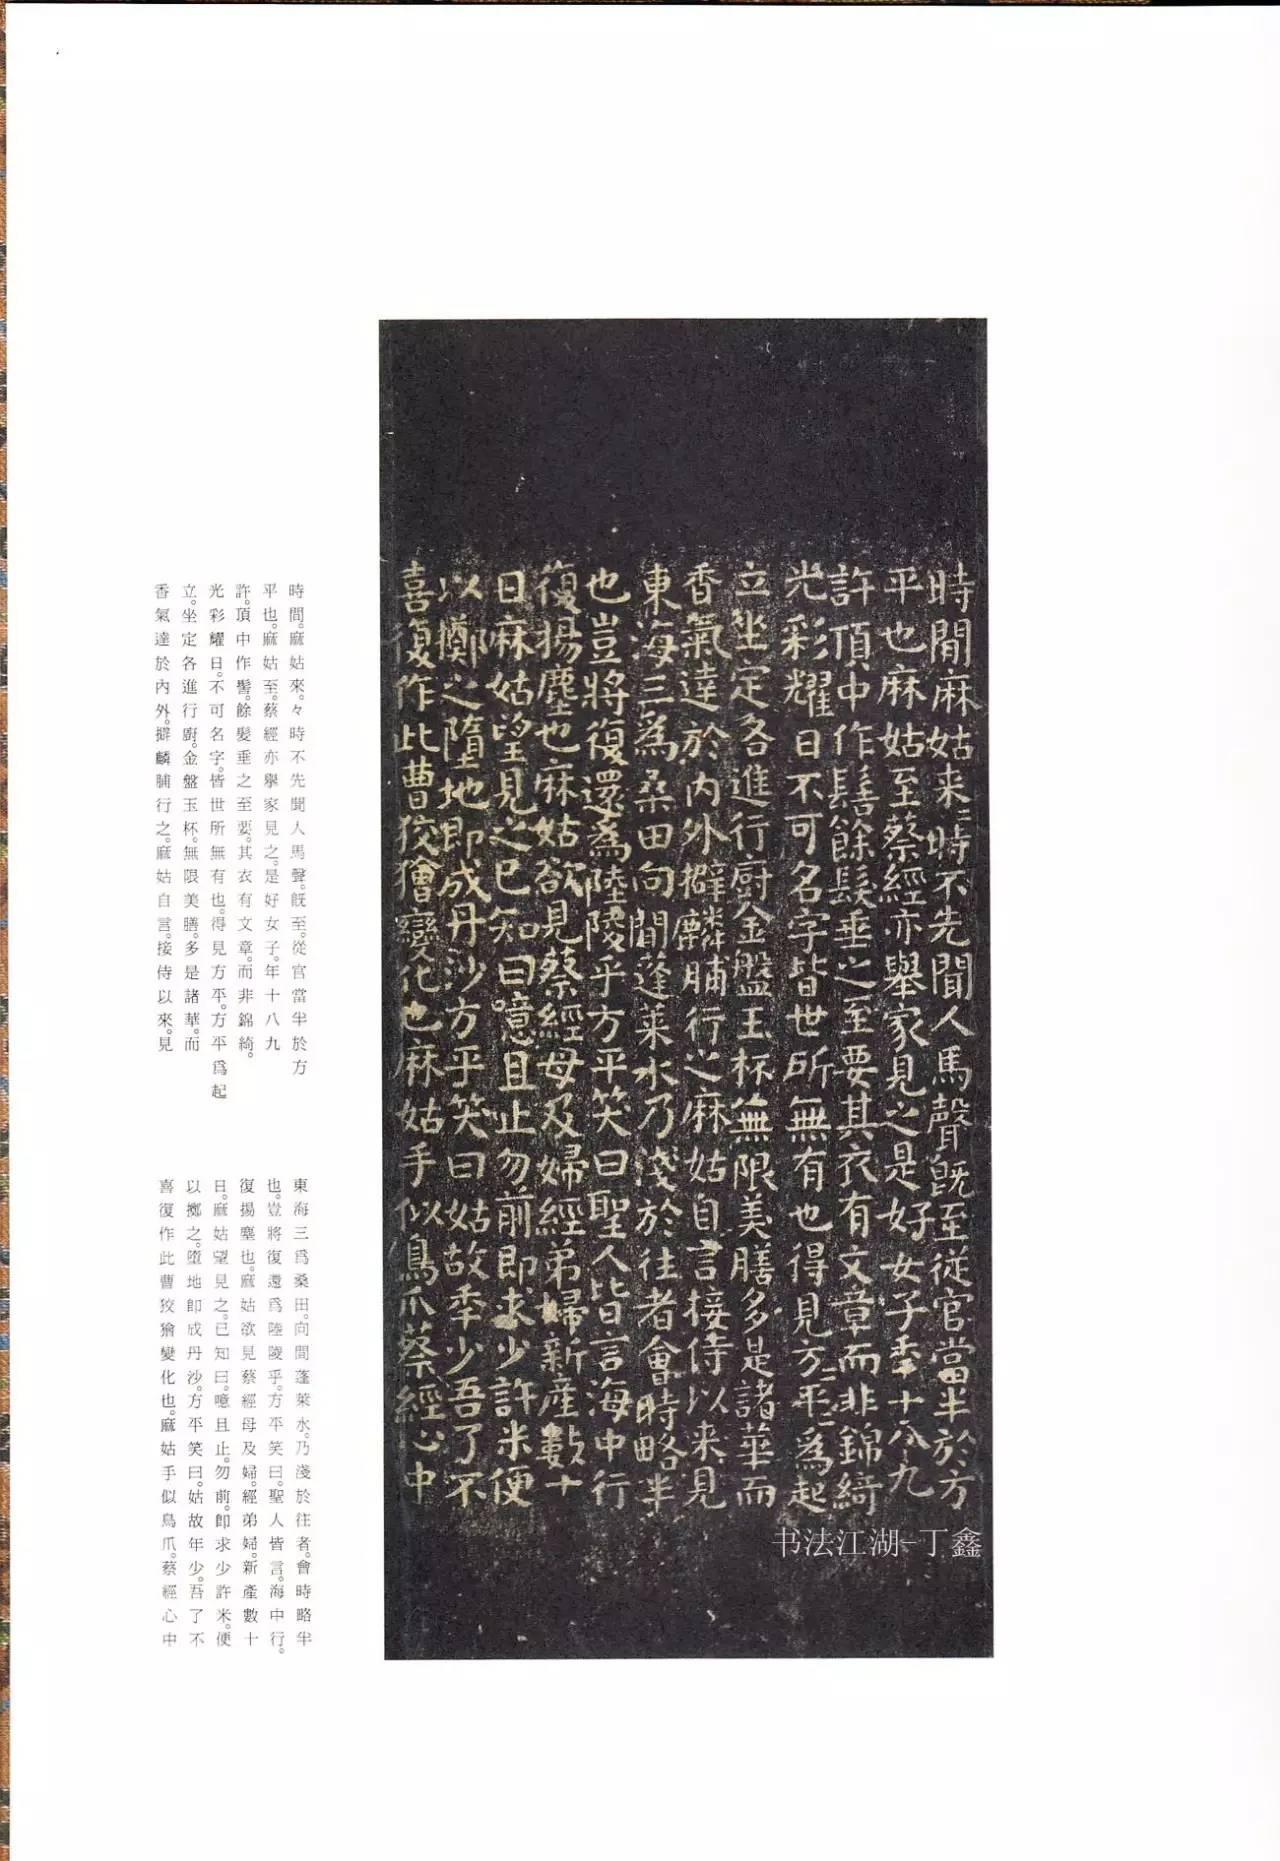 時間麻姑来〻時不先聞人馬聲既至從官當半於方
平也麻姑至蔡經亦舉家見之是好女子年十八九
許頂中作髻餘髮垂之至要其衣有文章而非錦綺
光彩耀日不可名字皆世所無有也得見方〻平〻爲起
立坐定各進行廚金盤玉杯無限美膳多是諸華而
香氣達於內外擗麟脯行之麻姑自言接侍以来見
東海三爲桑田向間蓬萊水乃淺於往者會時略半
也豈將復還爲陸陵乎方平笑曰聖人皆言海中行
復揚塵也麻姑欲見蔡經母及婦經弟婦新產數十
日麻姑望見之已知曰噫且止勿前即求少許米便
以擲之墮地即成丹沙方平笑曰姑故年少吾了不
喜復作此曹狡獪變化也麻姑手似鳥爪蔡經心中
书法江湖-丁鑫
時間。麻姑來。々時不先聞人馬聲。既至。從官當半於方
平也。麻姑至。蔡經亦舉家見之。是好女子。年十八九
許。頂中作髻。餘髮垂之至要。其衣有文章。而非錦綺。
光彩耀日。不可名字。皆世所無有也。得見方平。方平爲起
立。坐定各進行廚。金盤玉杯。無限美膳。多是諸華。而
香氣達於內外。擗麟脯行之。麻姑自言。接侍以來。見
東海三爲桑田。向間蓬萊水。乃淺於往者。會時略半
也。豈將復還爲陸陵乎。方平笑曰。聖人皆言。海中行。
復揚塵也。麻姑欲見蔡經母及婦。經弟婦。新產數十
日。麻姑望見之。已知曰。噫且止。勿前。即求少許米。便
以擲之。墮地即成丹沙。方平笑曰。姑故年少。吾了不
喜復作此曹狡獪變化也。麻姑手似鳥爪。蔡經心中